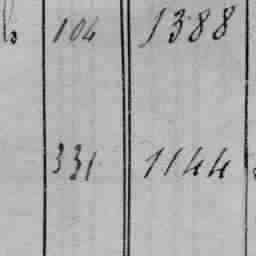 104 1388
331 1144